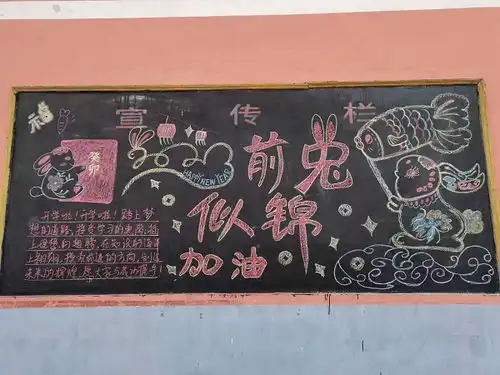 宣传栏
福
癸卯
HAPPY NEW YEAR
前兔
似锦
加油
开学啦！开学啦！踏上梦
想的道路，接受学习的
上缤纷的翅膀，在知识的海洋
上翱翔，找寻前进的方向，创造
未来的辉煌，愿大家与成功